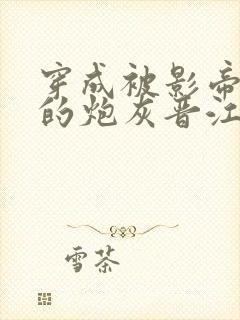 穿成被影帝
的炮灰晋江
雪茶